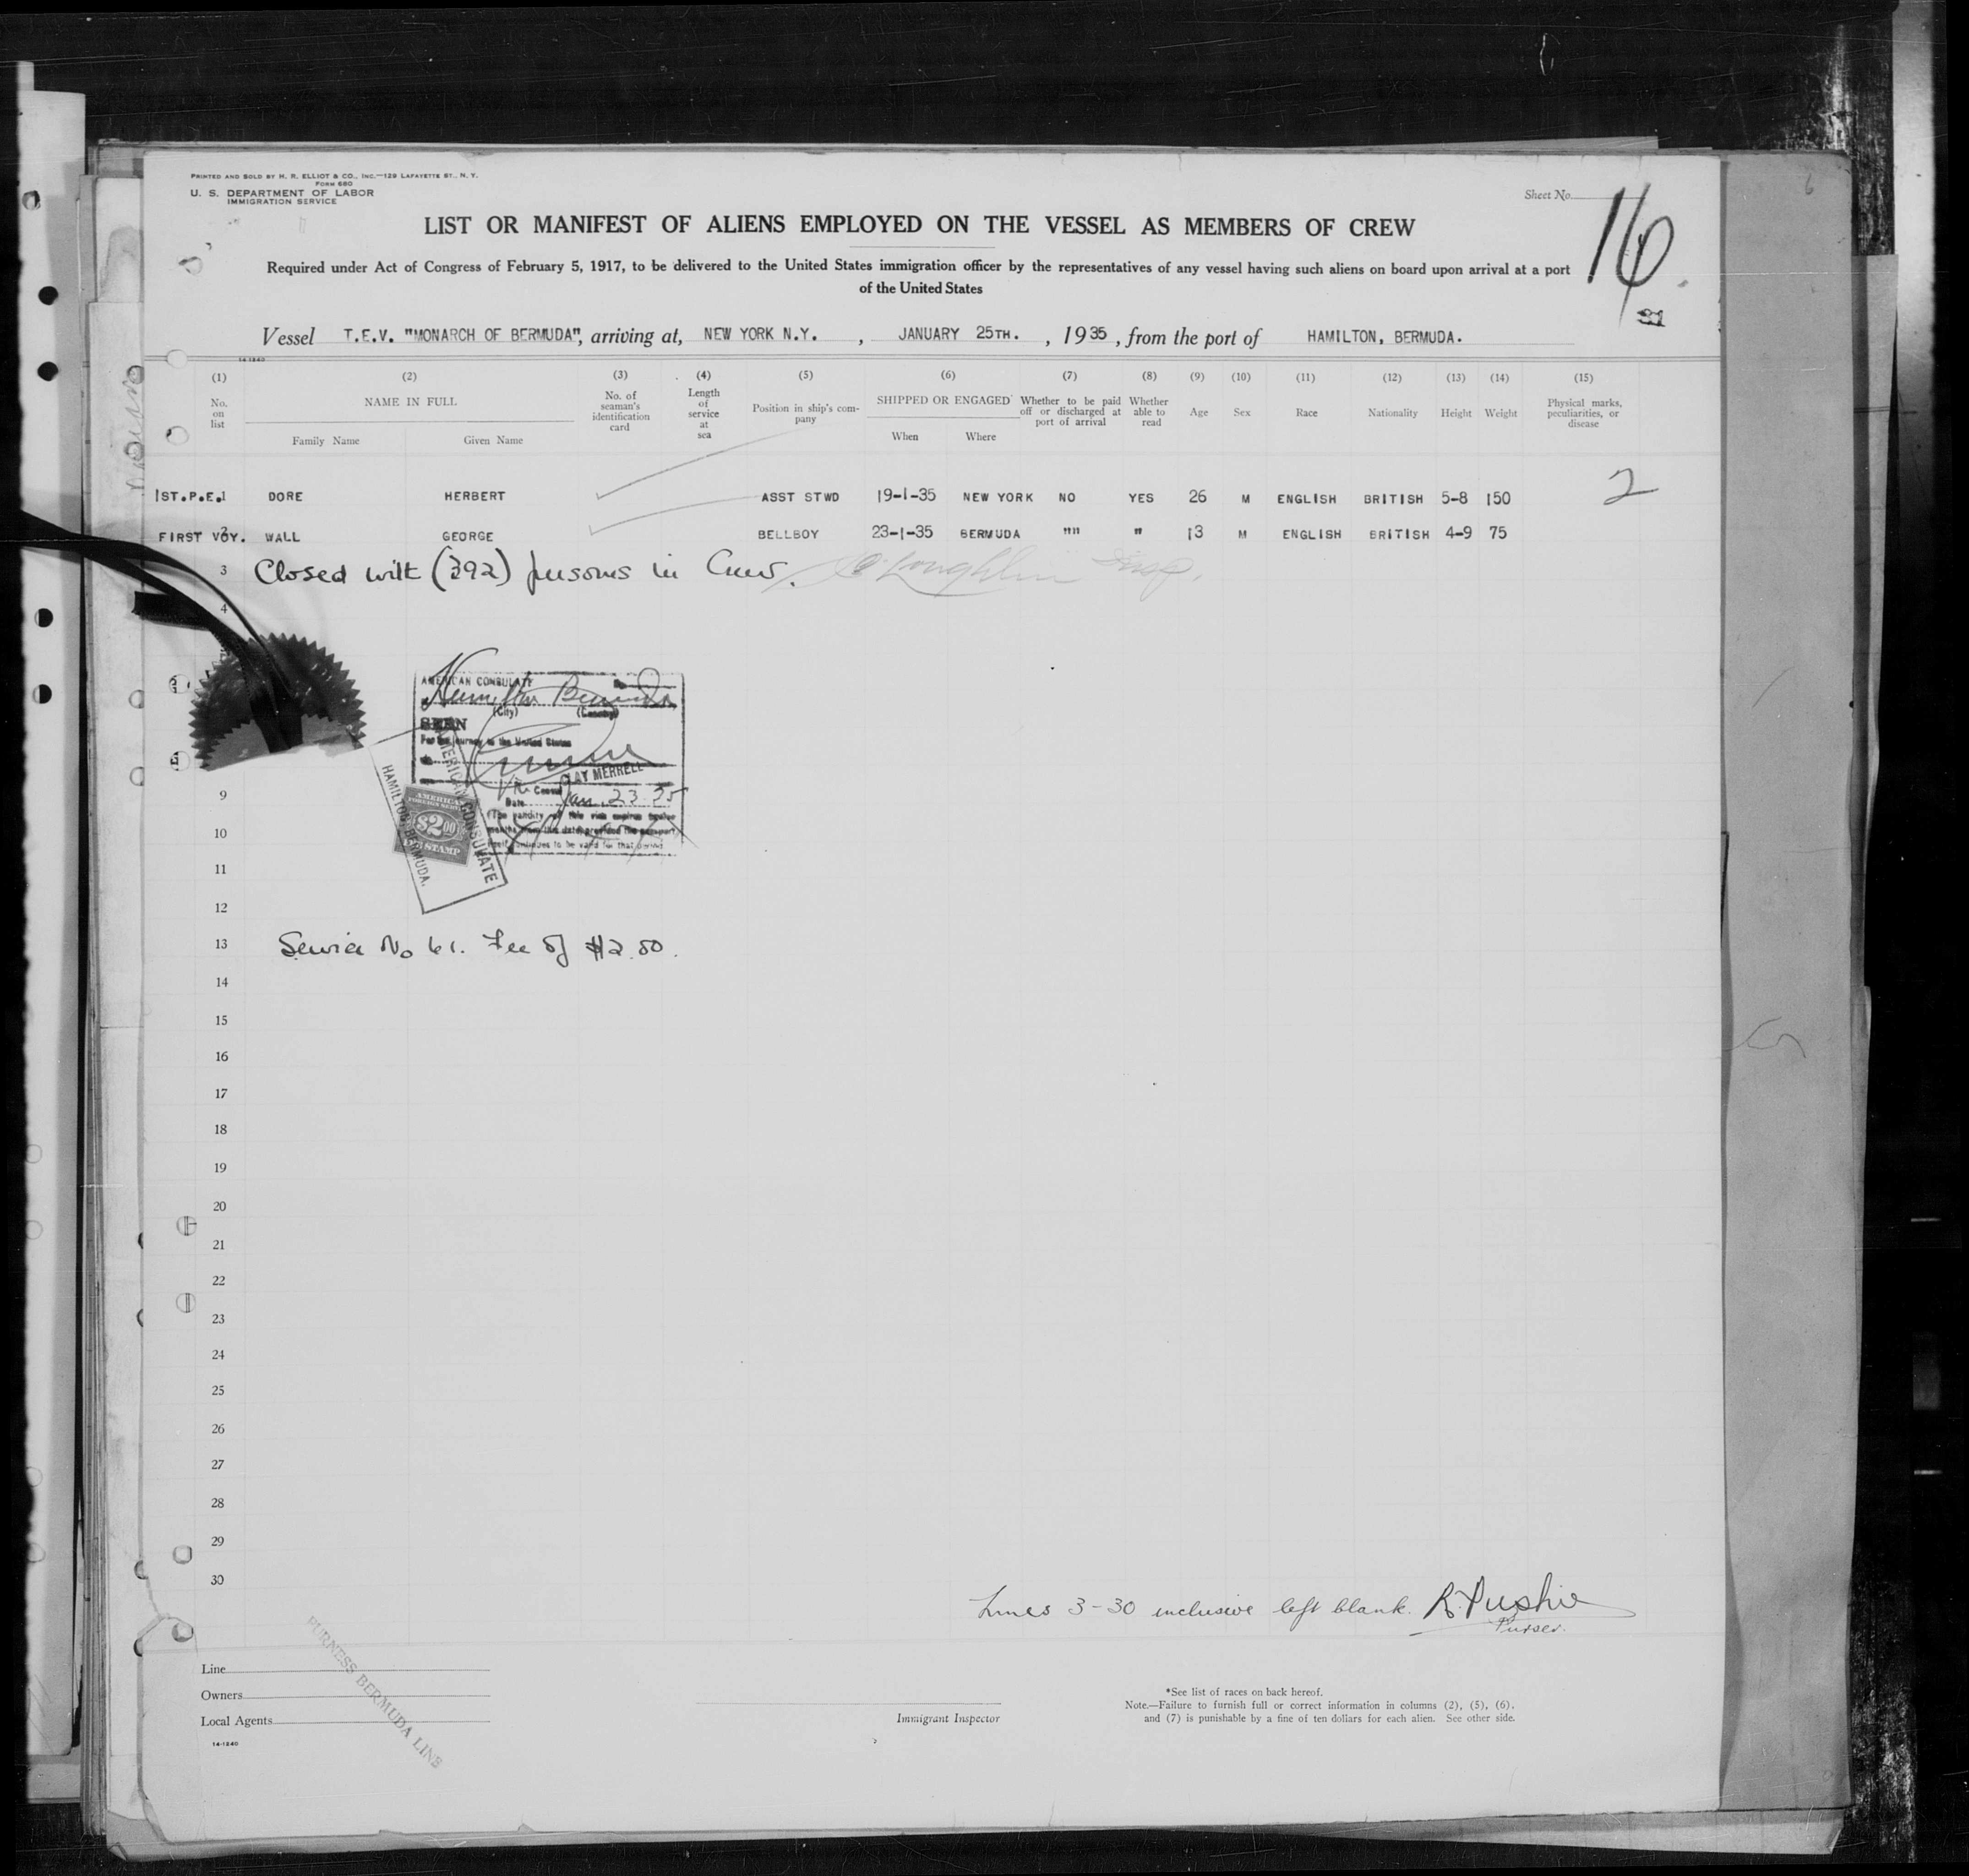 PRINTED AND SOLD BY H. R. ELLIOT & CO., INC.—129 LAFAYETTE ST., N. Y.
FORM 680
U. S. DEPARTMENT OF LABOR
IMMIGRATION SERVICE
Sheet No.
16
LIST OR MANIFEST OF ALIENS EMPLOYED ON THE VESSEL AS MEMBERS OF CREW
Required under Act of Congress of February 5, 1917, to be delivered to the United States immigration officer by the representatives of any vessel having such aliens on board upon arrival at a port
of the United States
31
Vessel T.E.V. "MONARCH OF BERMUDA", arriving at, NEW YORK N.Y. , JANUARY 25TH. , 1935, from the port of HAMILTON, BERMUDA.
14-1240
(1) (2) (3) (4) (5) (6) (7) (8) (9) (10) (11) (12) (13) (14) (15)
No. on list NAME IN FULL Family Name Given Name No. of seaman's identification card Length of service at sea Position in ship's company SHIPPED OR ENGAGED When Where Whether to be paid off or discharged at port of arrival Whether able to read Age Sex Race Nationality Height Weight Physical marks, peculiarities, or disease
1ST.P.E. 1 DORE HERBERT ASST STWD 19-1-35 NEW YORK NO YES 26 M ENGLISH BRITISH 5-8 150 2
FIRST VOY. 2 WALL GEORGE BELLBOY 23-1-35 BERMUDA "" " 13 M ENGLISH BRITISH 4-9 75
3 Closed with (392) persons in Crew.
4
AMERICAN CONSULATE
Hamilton Bermuda
(City) (Country)
SEEN
For the journey to the United States
CLAY MERRELL
Vice Consul
Date Jan. 23. 35
(The validity of this visa expires twelve
months from this date, provided the passport
itself continues to be valid for that period
AMERICAN CONSULATE
HAMILTON, BERMUDA.
AMERICAN
FOREIGN SERVICE
$2.00
FEE STAMP
9
10
11
12
13 Service No 61. Fee of $2.00.
14
15
16
17
18
19
20
21
22
23
24
25
26
27
28
29
30
Lines 3-30 inclusive left blank. R. Pushie
Purser.
FURNESS BERMUDA LINE
Line
Owners
Local Agents
14-1240
Immigrant Inspector
*See list of races on back hereof.
Note.—Failure to furnish full or correct information in columns (2), (5), (6),
and (7) is punishable by a fine of ten dollars for each alien. See other side.